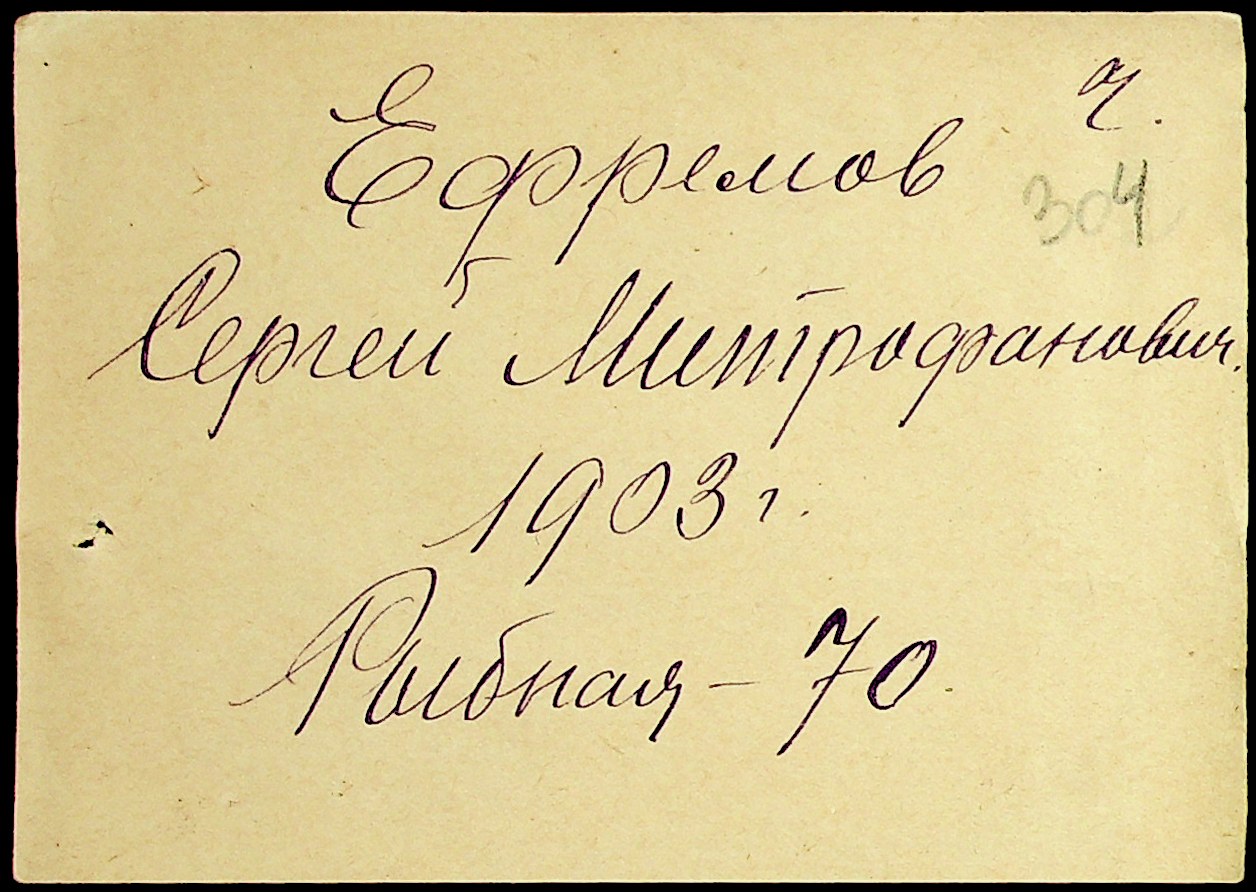 ч.
Ефремов
304
Сергей Митрофанович.
1903 г.
Рыбная - 70